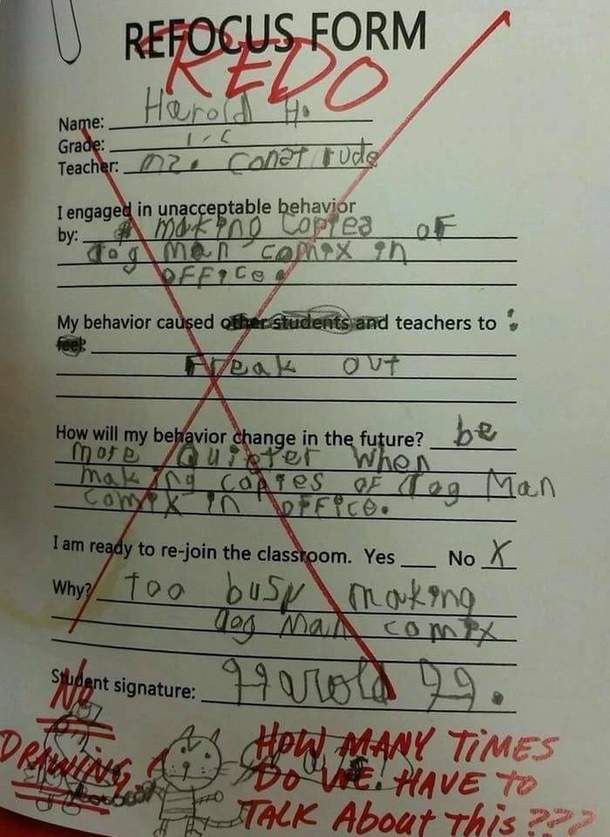 REFOCUS FORM
REDO
Name: Harold H.
Grade:
Teacher: mz. construde
I engaged in unacceptable behavior
by: making copies of
dog man comix in
office.
My behavior caused other students and teachers to :
feel:
Freak out
How will my behavior change in the future? be
more Quieter when
making copies of dog Man
comix in office.
I am ready to re-join the classroom. Yes ___ No X
Why? too busy making
dog Man comix
Student signature: Harold H.
No
DRAWING!
HOW MANY TIMES
DO WE HAVE TO
TALK About This???